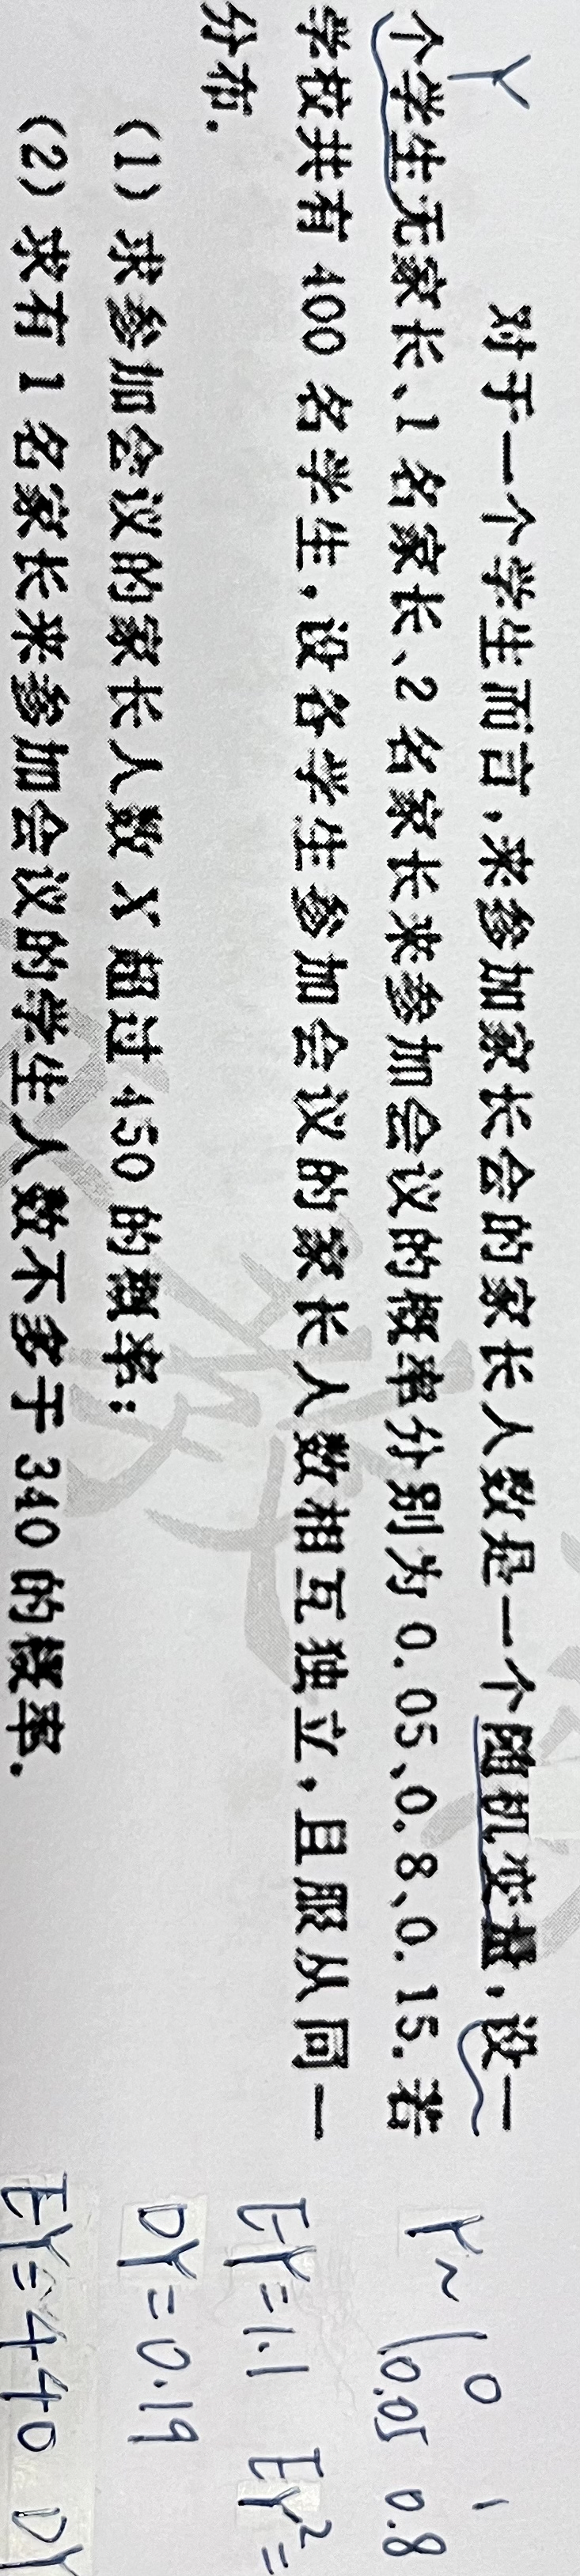 对于一个学生而言,来参加家长会的家长人数是一个随机变量,设一
个学生无家长、1名家长、2名家长来参加会议的概率分别为0.05、0.8、0.15.若
学校共有400名学生,设各学生参加会议的家长人数相互独立,且服从同一
分布.
(1)求参加会议的家长人数X超过450的概率;
(2)求有1名家长来参加会议的学生人数不多于340的概率.
Y
Y~(0 1
0.05 0.8
EY=1.1 EY²=
DY=0.19
EY=440 DY